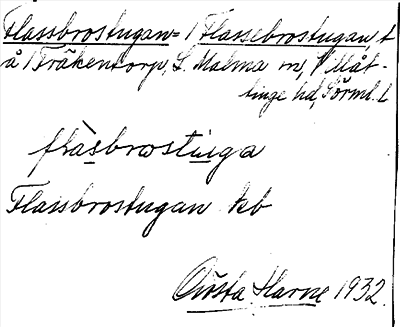 Flassbrostugan = / Flassebrostugan, t
å Bräkentorp, L. Malma sn, Villåt-
tinge hd, Sörml. l.
flàsbrostuga
Flassbrostugan kb
Gösta Harne 1932.